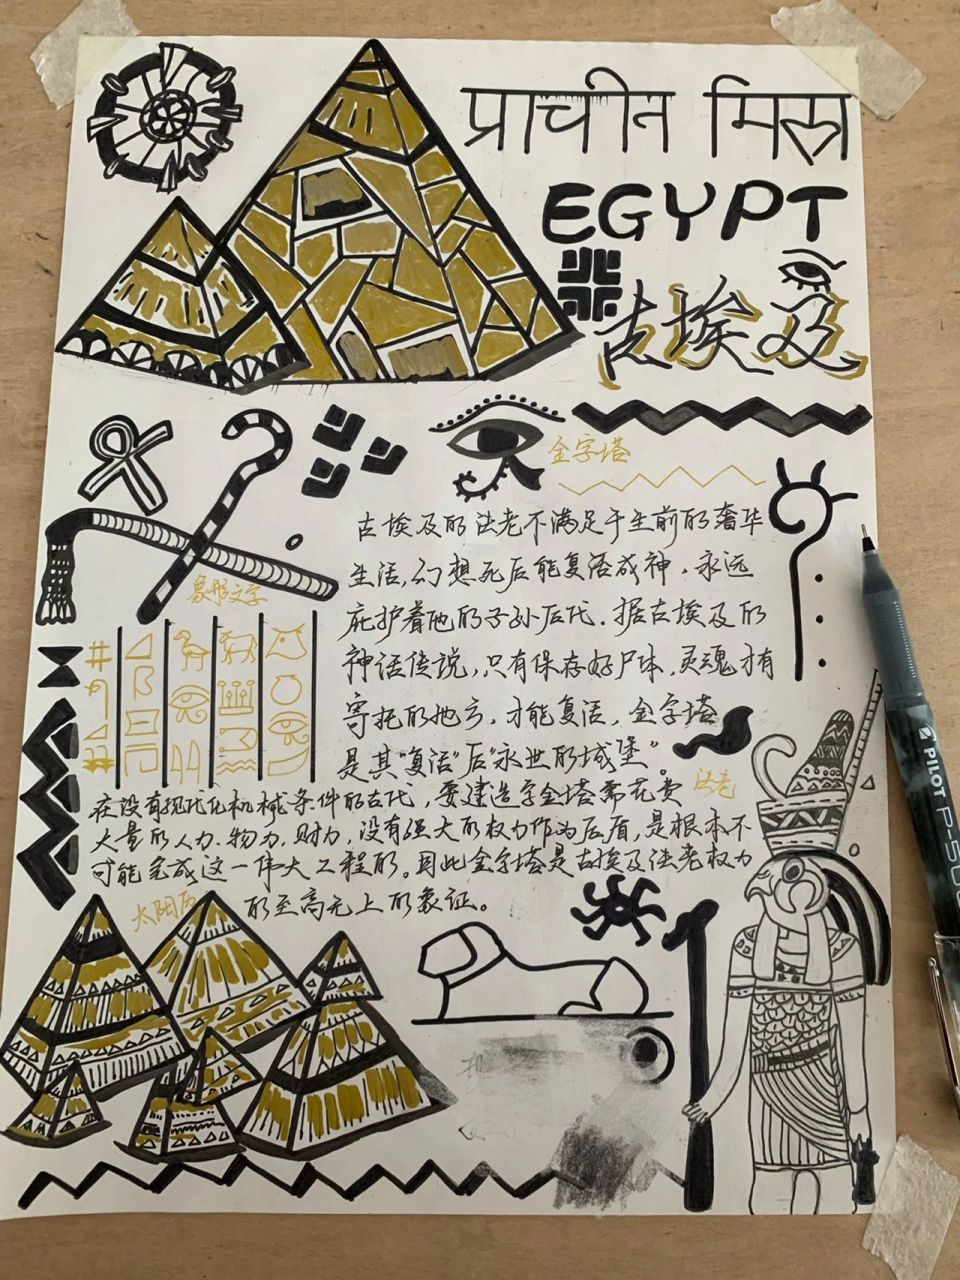 प्राचीन मिस्र
EGYPT
古埃及
金字塔
古埃及的法老不满足于生前的奢华
生活,幻想死后能复活成神,永远
庇护着他的子孙后代.据古埃及的
神话传说,只有保存好尸体,灵魂才有
寄托的地方,才能复活,金字塔
是其"复活"后"永世的城堡"。
象形文字
法老
在没有现代化机械条件的古代,要建造字金塔需花费
大量的人力.物力,财力,没有强大的权力作为后盾,是根本不
可能完成这一伟大工程的。因此金字塔是古埃及法老权力
的至高无上的象征。
PILOT P-500